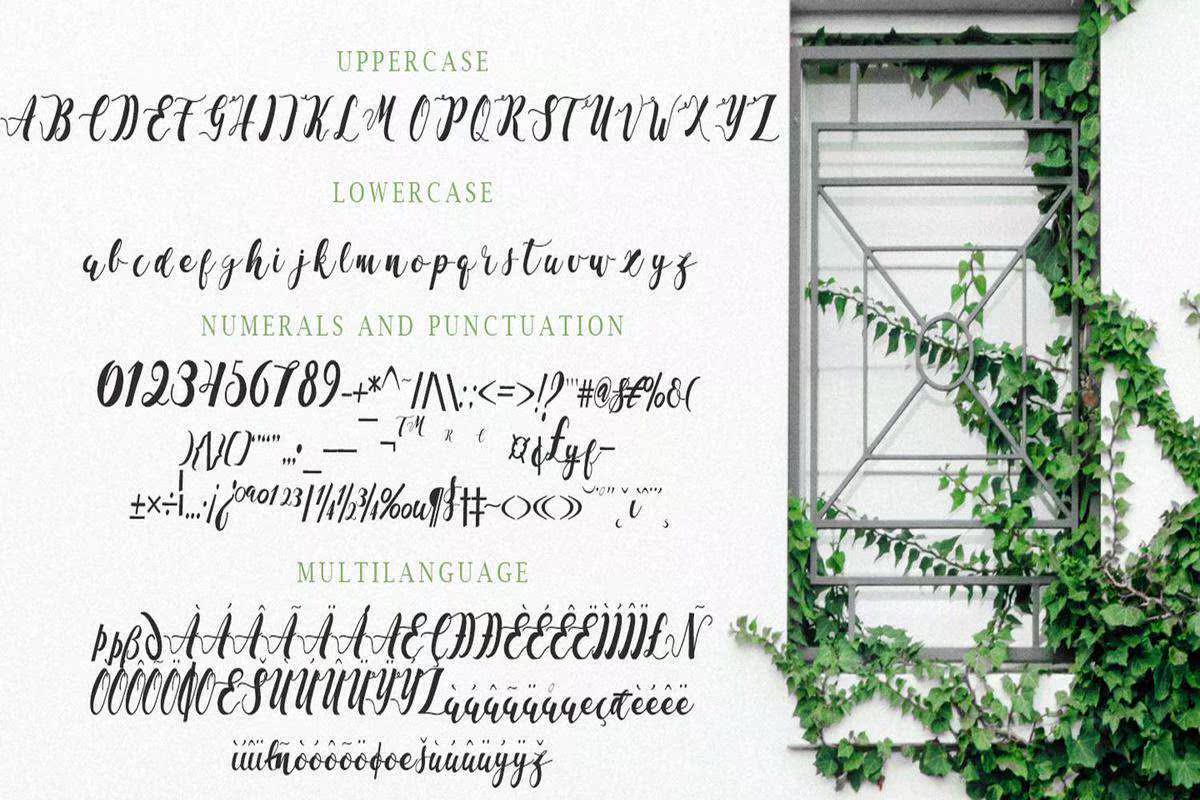 UPPERCASE
A B C D E F G H I J K L M O P Q R S T U V W X Y Z
LOWERCASE
a b c d e f g h i j k l m n o p q r s t u v w x y z
NUMERALS AND PUNCTUATION
0123456789-+*^~/|/\\:;<=>!?'"#@$£€%&(
){}[]()''“”‚„...•_–— ¯¬TM R C ¤¢£yƒ−
±×÷¦...·¡¿ºª0123|¼½¾‰ou¶§†‡~‹›«»
MULTILANGUAGE
ÀÁÂÃÄÅÁÆÇÐĐÈÉÊËÌÍÎÏŁÑ
ÒÓÔÕÖØŒŠÙÚÛÜÝŸŽàáâãäåáæçđèéêë
ìíîïłñòóôõöøœšùúûüýÿž